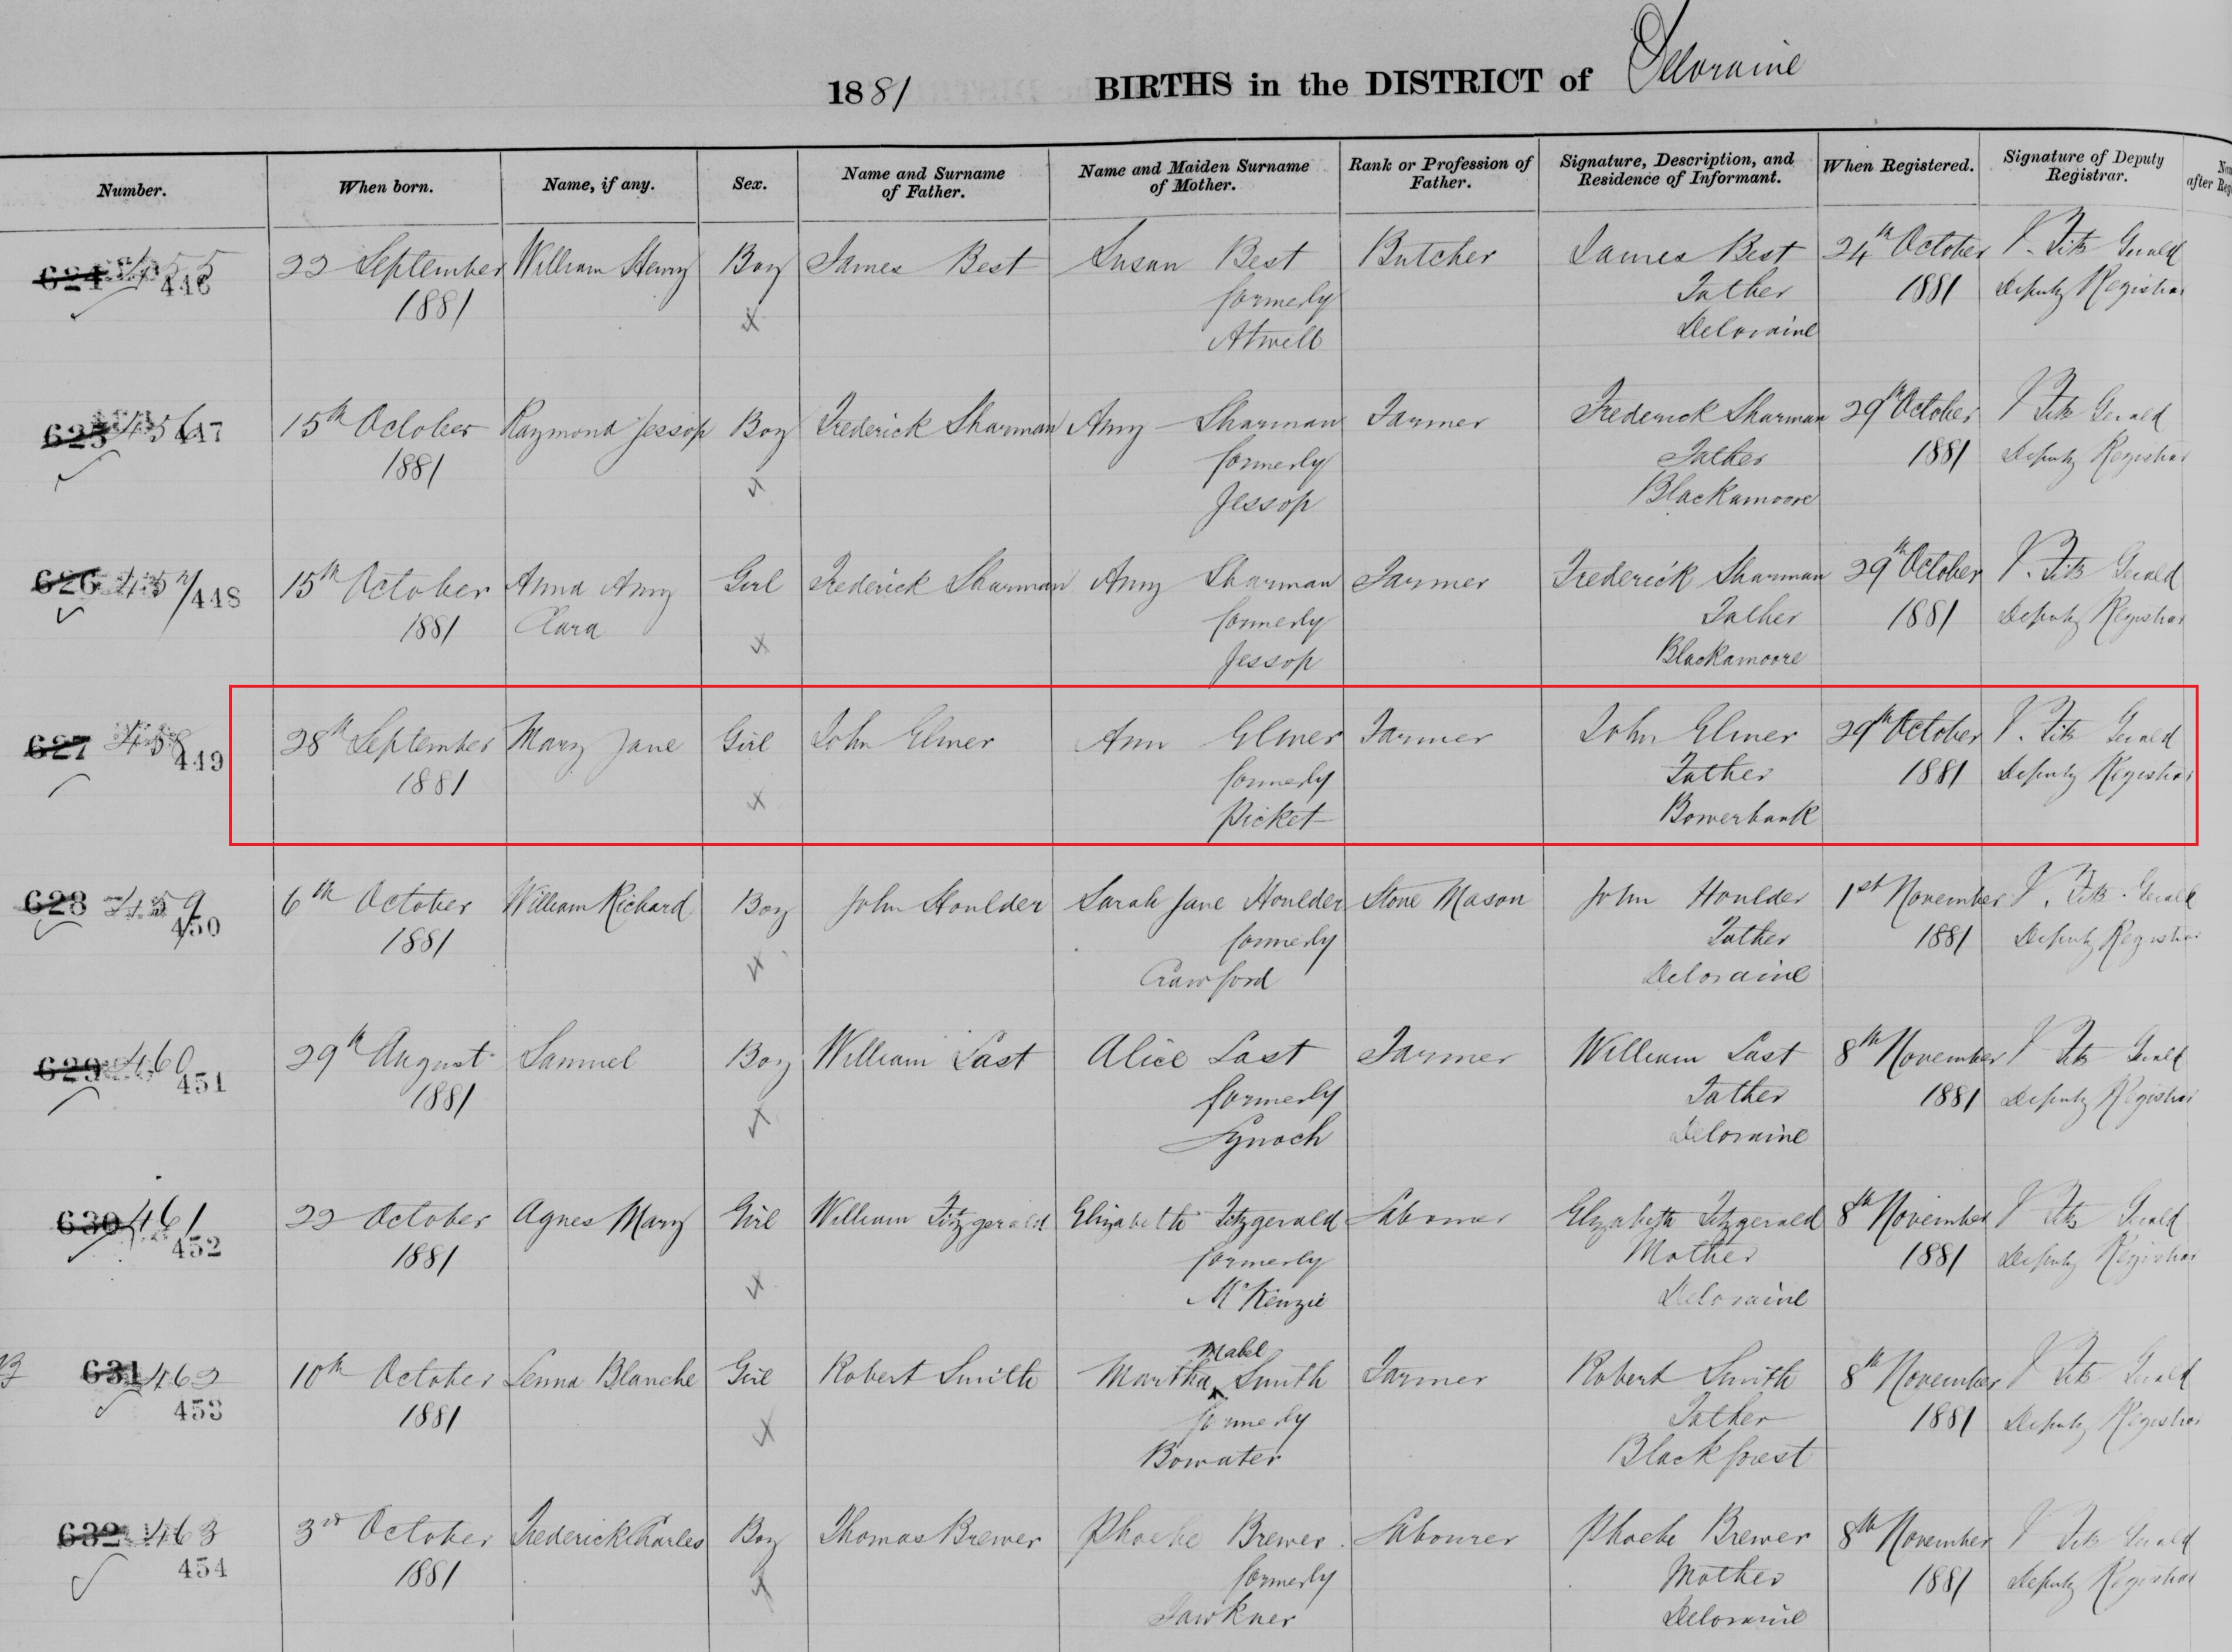 1881 BIRTHS in the DISTRICT of Deloraine
Number. When born. Name, if any. Sex. Name and Surname of Father. Name and Maiden Surname of Mother. Rank or Profession of Father. Signature, Description, and Residence of Informant. When Registered. Signature of Deputy Registrar.
624 455 22 September William Henry Boy James Best Susan Best Butcher James Best 24th October Fitz Gerald
446 1881 formerly Father 1881 Deputy Registrar
Atwell Deloraine
625 456 15th October Raymond Jessop Boy Frederick Sharman Amy Sharman Farmer Frederick Sharman 29th October Fitz Gerald
447 1881 formerly Father 1881 Deputy Registrar
Jessop Blackamoore
626 457 15th October Anna Amy Girl Frederick Sharman Amy Sharman Farmer Frederick Sharman 29th October Fitz Gerald
448 1881 Clara formerly Father 1881 Deputy Registrar
Jessop Blackamoore
627 458 28th September Mary Jane Girl John Elmer Ann Elmer Farmer John Elmer 29th October Fitz Gerald
449 1881 formerly Father 1881 Deputy Registrar
Picket Bowerbank
628 459 6th October William Richard Boy John Houlder Sarah Jane Houlder Stone Mason John Houlder 1st November Fitz Gerald
450 1881 formerly Father 1881 Deputy Registrar
Crawford Deloraine
629 460 29th August Samuel Boy William Last Alice Last Farmer William Last 8th November Fitz Gerald
451 1881 formerly Father 1881 Deputy Registrar
Synoch Deloraine
630 461 22 October Agnes Mary Girl William Fitzgerald Elizabeth Fitzgerald Labourer Elizabeth Fitzgerald 8th November Fitz Gerald
452 1881 formerly Mother 1881 Deputy Registrar
McKenzie Deloraine
Mabel
631 462 10th October Lenna Blanche Girl Robert Smith Martha Smith Farmer Robert Smith 8th November Fitz Gerald
453 1881 formerly Father 1881 Deputy Registrar
Bowater Blackforest
632 463 3rd October Frederick Charles Boy Thomas Brewer Phoebe Brewer Labourer Phoebe Brewer 8th November Fitz Gerald
454 1881 formerly Mother 1881 Deputy Registrar
Fawkner Deloraine